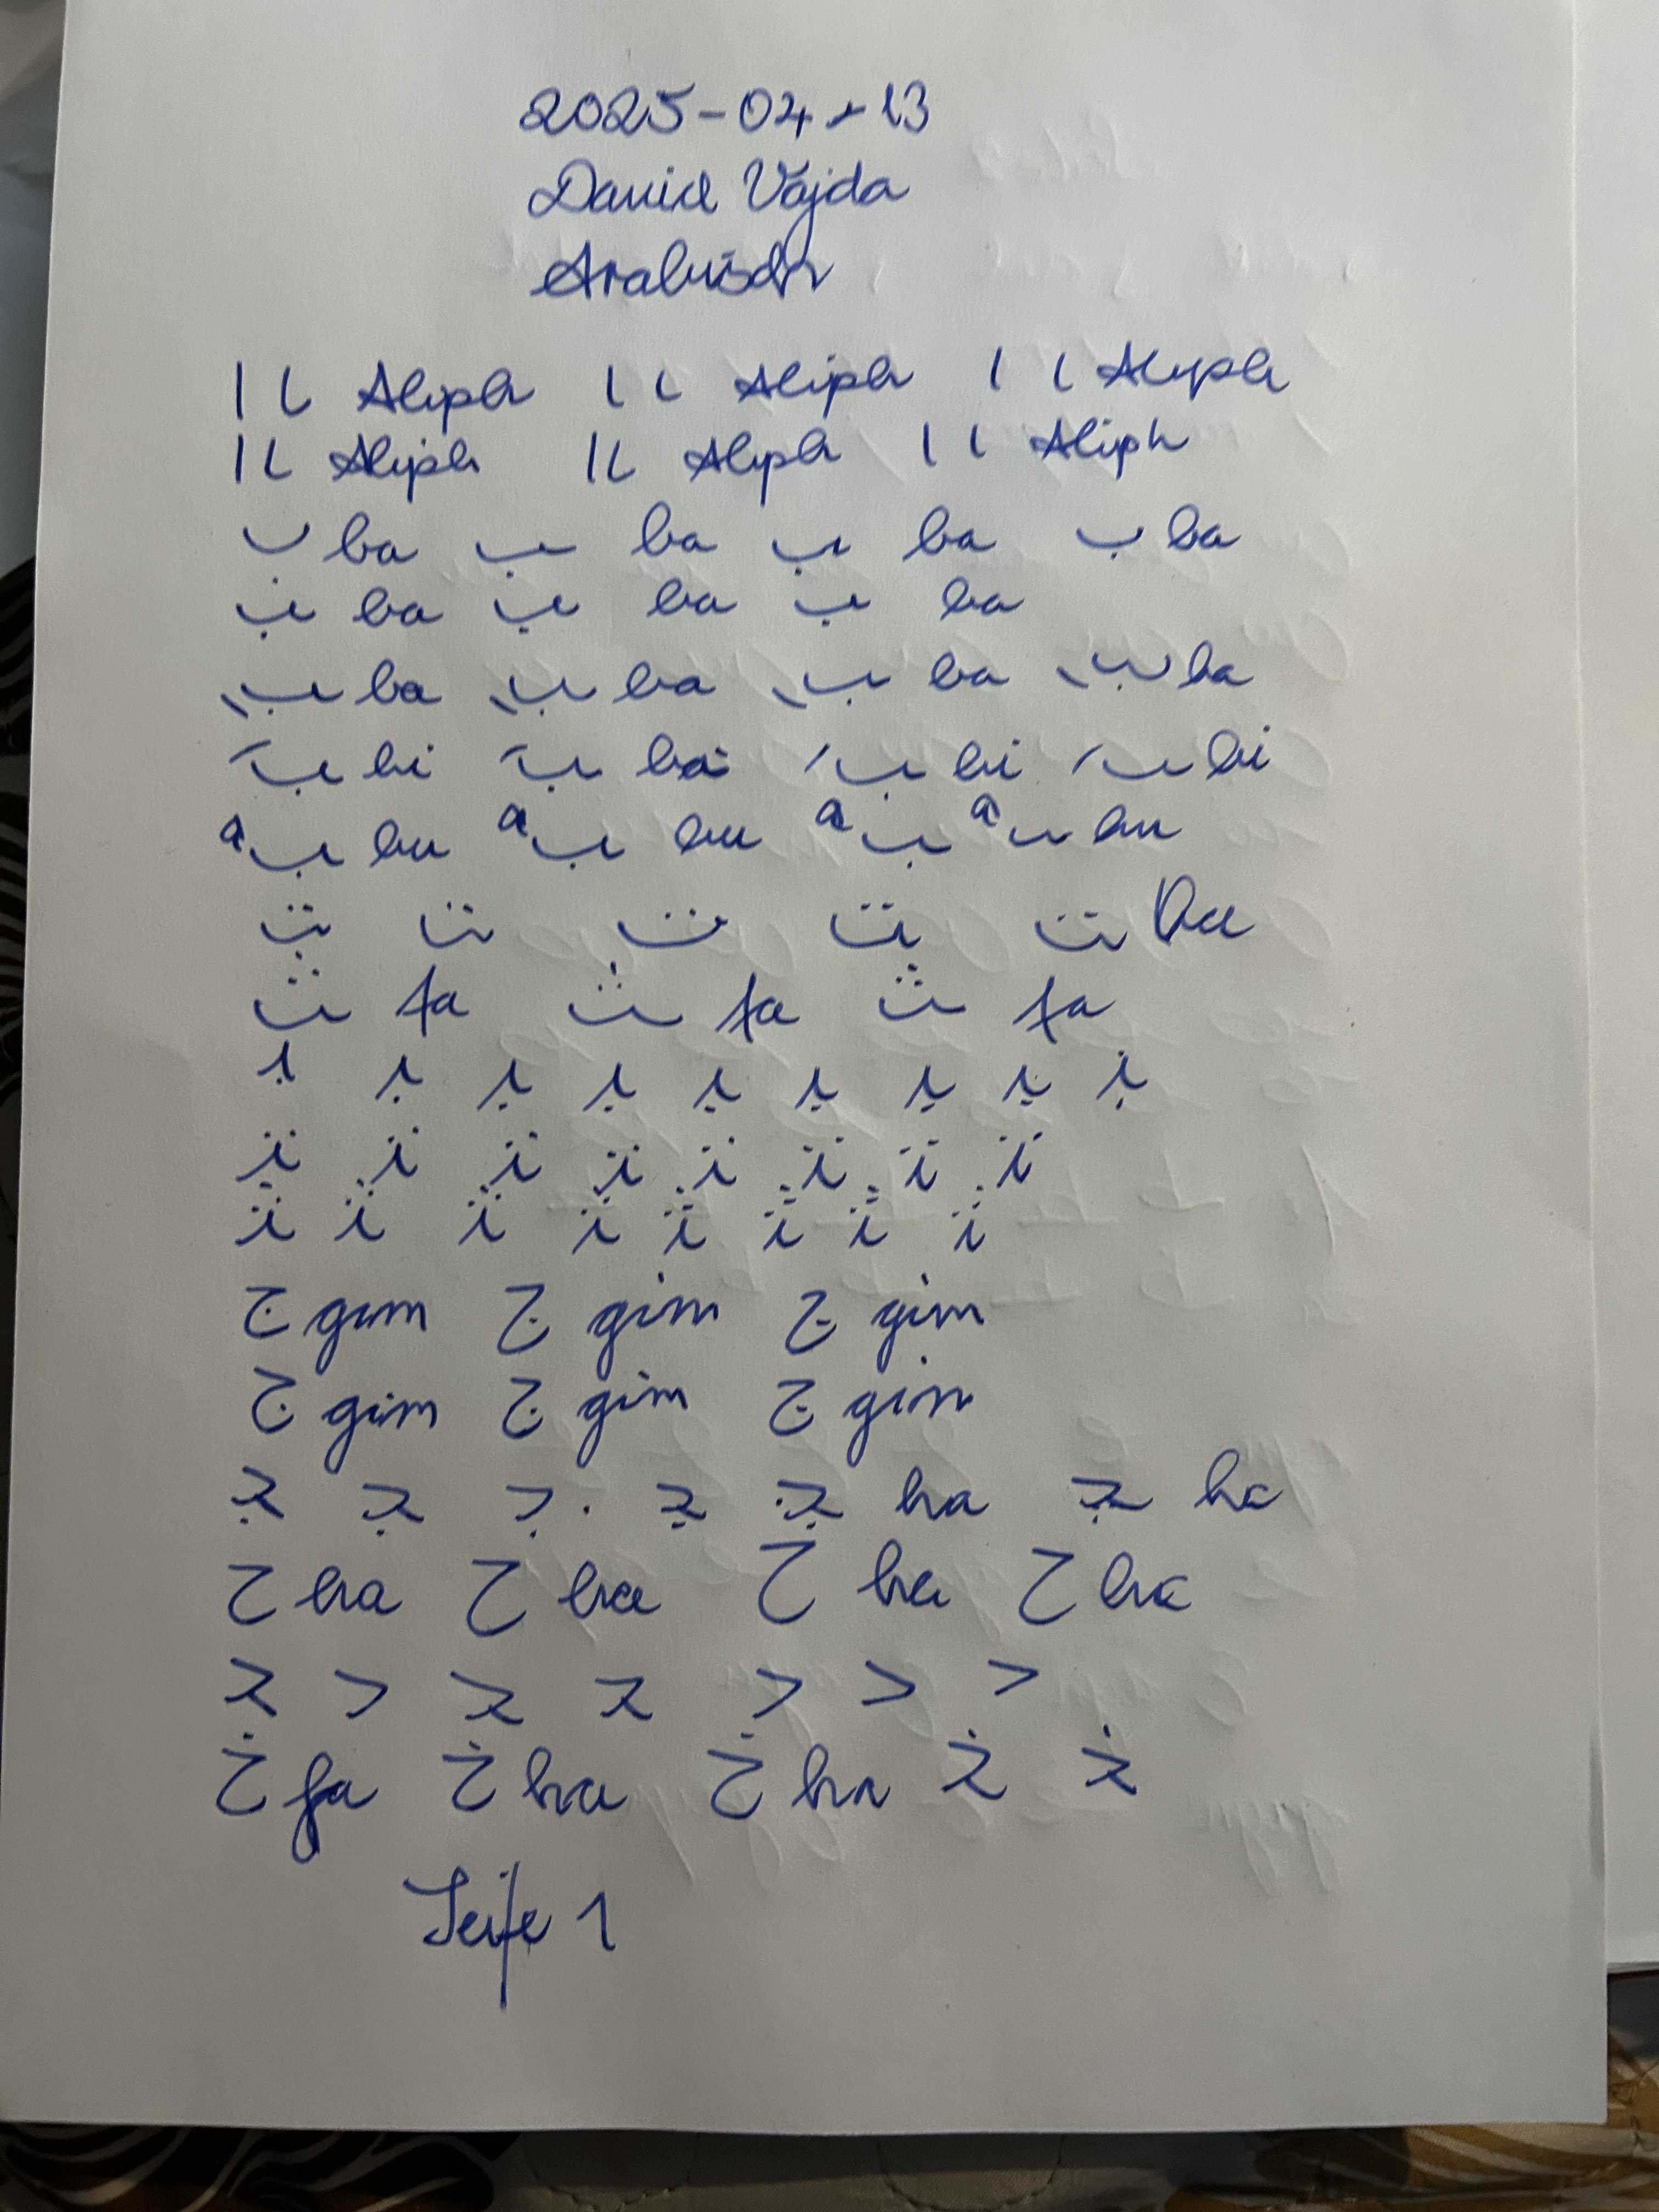 2025-04-13
David Vajda
Arabisch
ا ـا Aliph ا ـا Aliph ا ـا Aliph
ا ـا Aliph ا ـا Aliph ا ـا Aliph
ب ba ب ba ب ba ب ba
ب ba ب ba ب ba
ب ba ب ba ب ba ب ba
ب bi ب ba ب bi ب bi
ب bu ب bu ب ب bu
ت ت ت ت ت
ث ta ث ta ث ta
ج gim ج gim ج gim
ج gim ج gim ج gim
جـ جـ جـ جـ جـ ha جـ ha
ح ha ح ha ح ha ح ha
حـ حـ حـ حـ حـ حـ حـ
خ خ ha خ ha خـ خـ
Seite 1